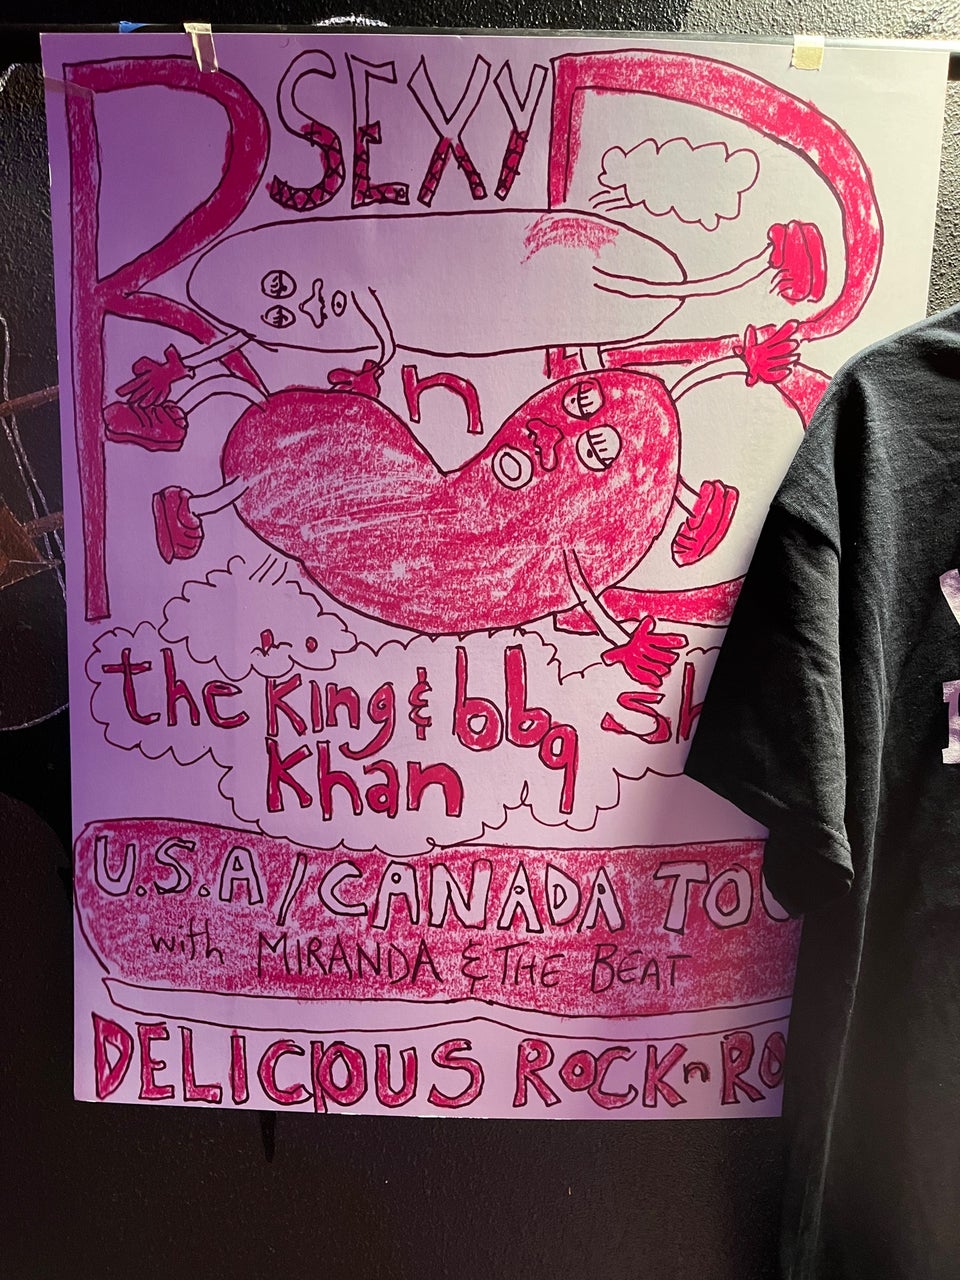 SEXY
R n B
the King & bbq sh
Khan
U.S.A / CANADA TOU
with MIRANDA & THE BEAT
DELICIOUS ROCK n RO